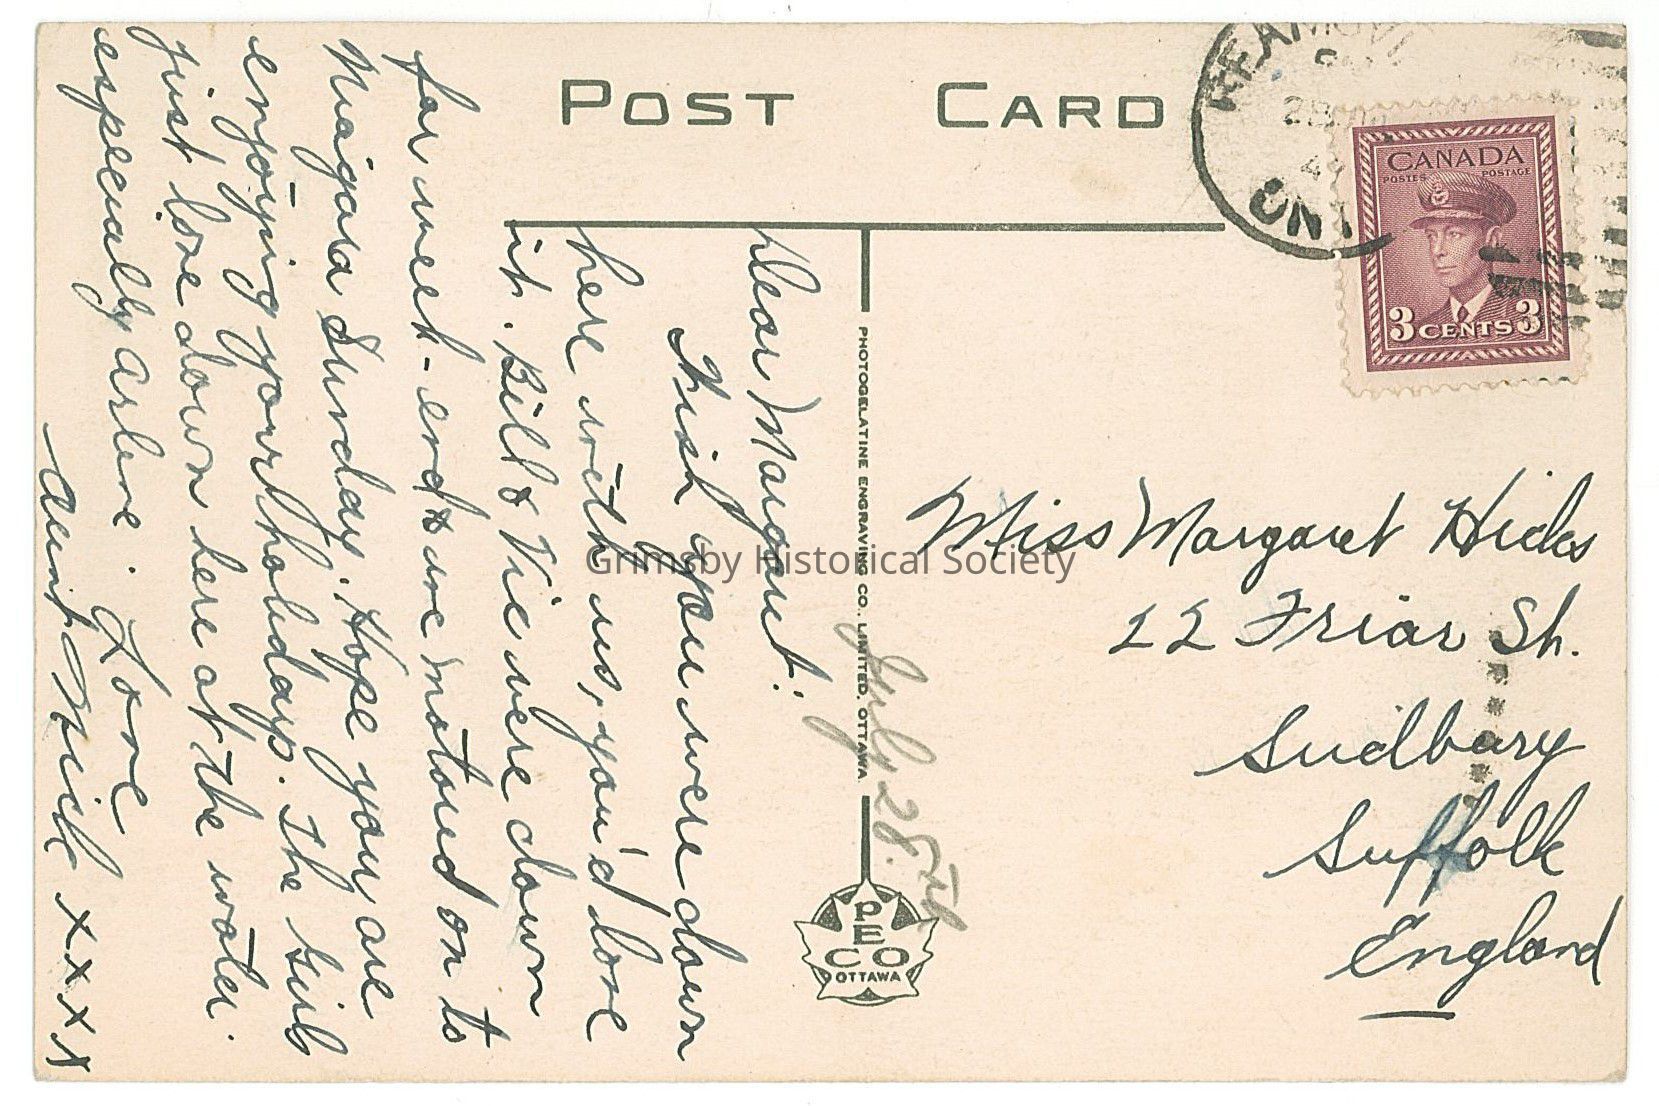 POST CARD
REAMSVI
ONT
CANADA
POSTES POSTAGE
3 CENTS 3
Dear Margaret:
Wish you were down
here with us, you'd love
it. Bill & Vic were down
for week-end & we motored on to
Niagara Sunday. Hope you are
enjoying your holidays. The girls
just love down here at the water
especially Arlene. Love
Aunt xxxx
PHOTOGELATINE ENGRAVING CO., LIMITED, OTTAWA
July 28th
PECO
OTTAWA
Miss Margaret Hicks
22 Friar St.
Sudbury
Suffolk
England
Grimsby Historical Society